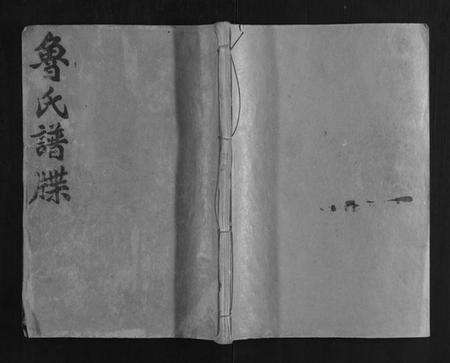 魯氏譜牒